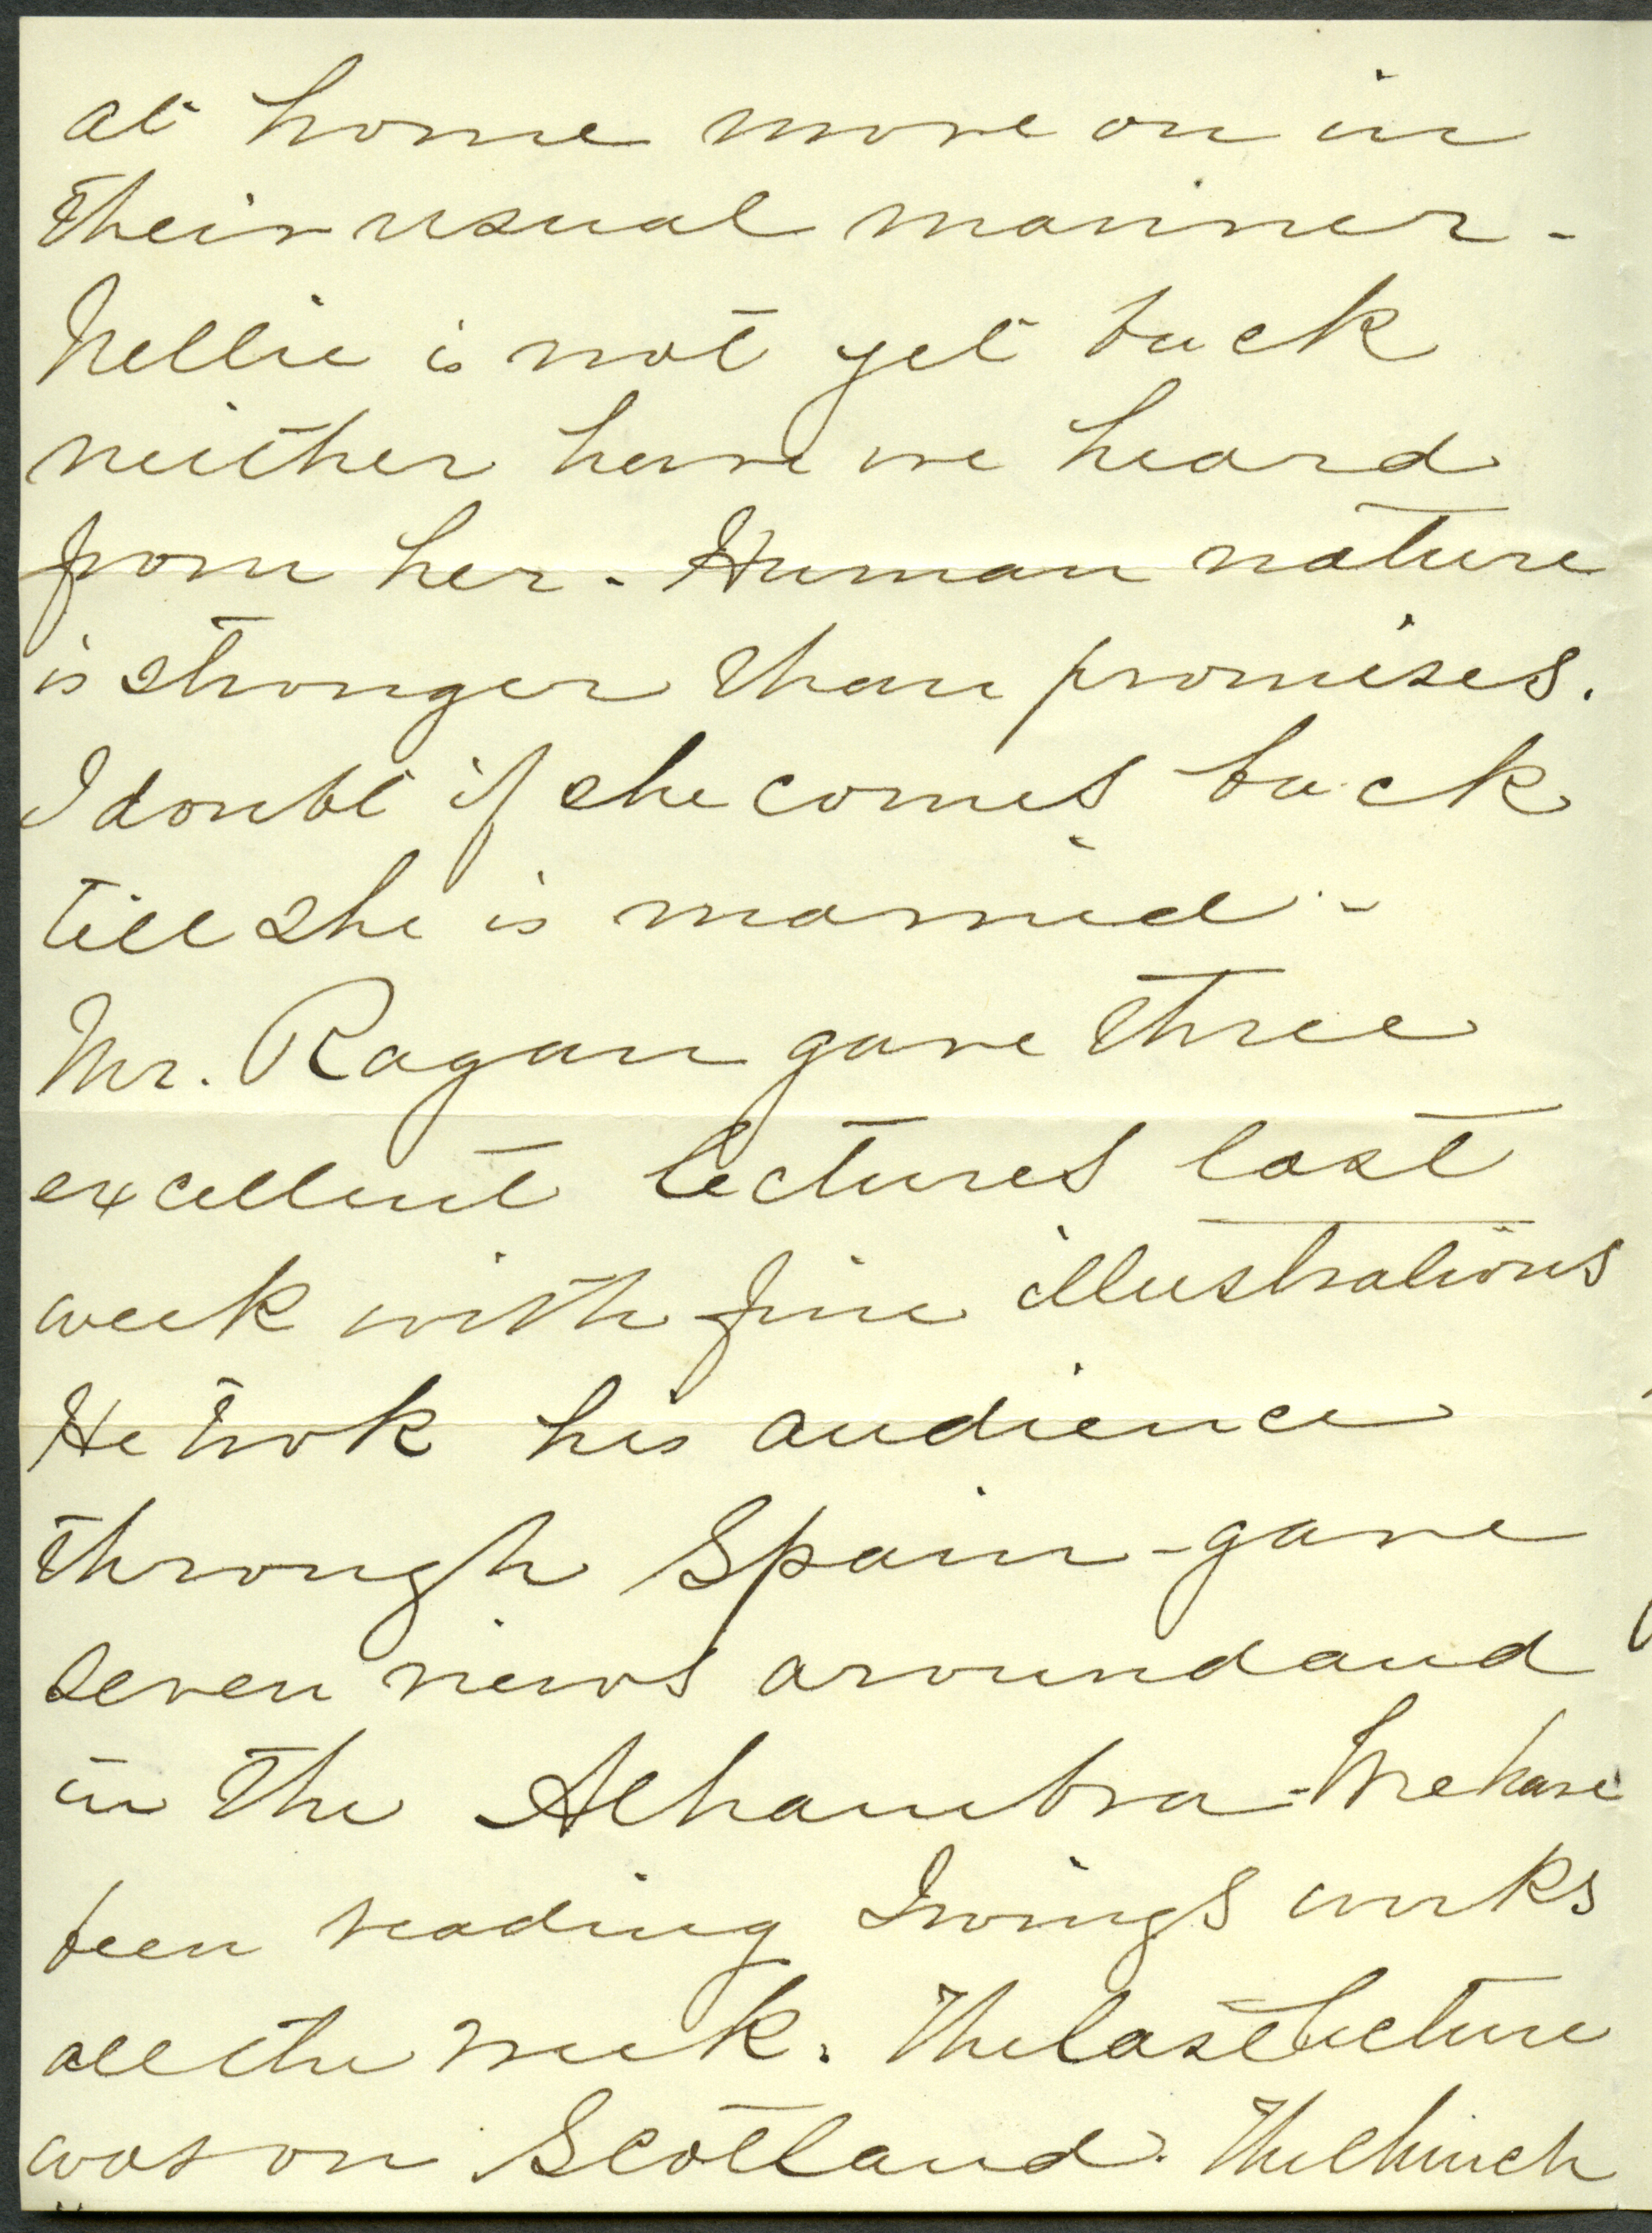 at home move on in
their usual manner -
Nellie is not yet back
neither have we heard
from her - Human nature
is stronger than promises.
I doubt if she comes back
till she is married -
Mr. Ragan gave three
excellent lectures last
week with fine illustrations
He took his audience
through Spain - gave
seven views around and
in the Alhambra - We have
been reading Irvings works
all the week. The last lecture
was on Scotland. The church